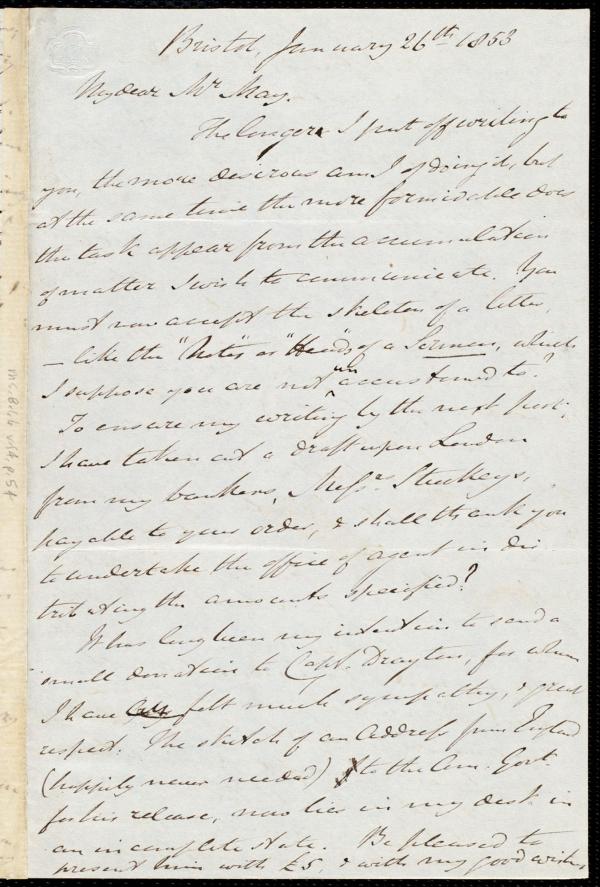 Bristol, January 26th 1853
My dear Mr May.
The longer I put off writing to
you, the more desirous am I of doing it, but
at the same time the more formidable does
the task appear from the accumulation
of matter I wish to communicate. You
must now accept the skeleton of a letter,
— like the "Notes" or "Heads" of a Sermon, which
I suppose you are not unaccustomed to?
To ensure my writing by the next post,
I have taken out a draft upon London
from my bankers, Messrs. Stuckeys,
payable to your order, & shall thank you
to undertake the office of agent in dis
tributing the amounts specified?
It has long been my intention to send a
small donation to Capt. Drayton, for whom
I have felt much sympathy, & great
respect. The sketch of an Address from England
(happily never needed) to the Am. Govt.
for his release, now lies in my desk in
an incomplete state. Be pleased to
present him with £5, & with my good wishes,
Ms.B.1.6 v.14, p.54